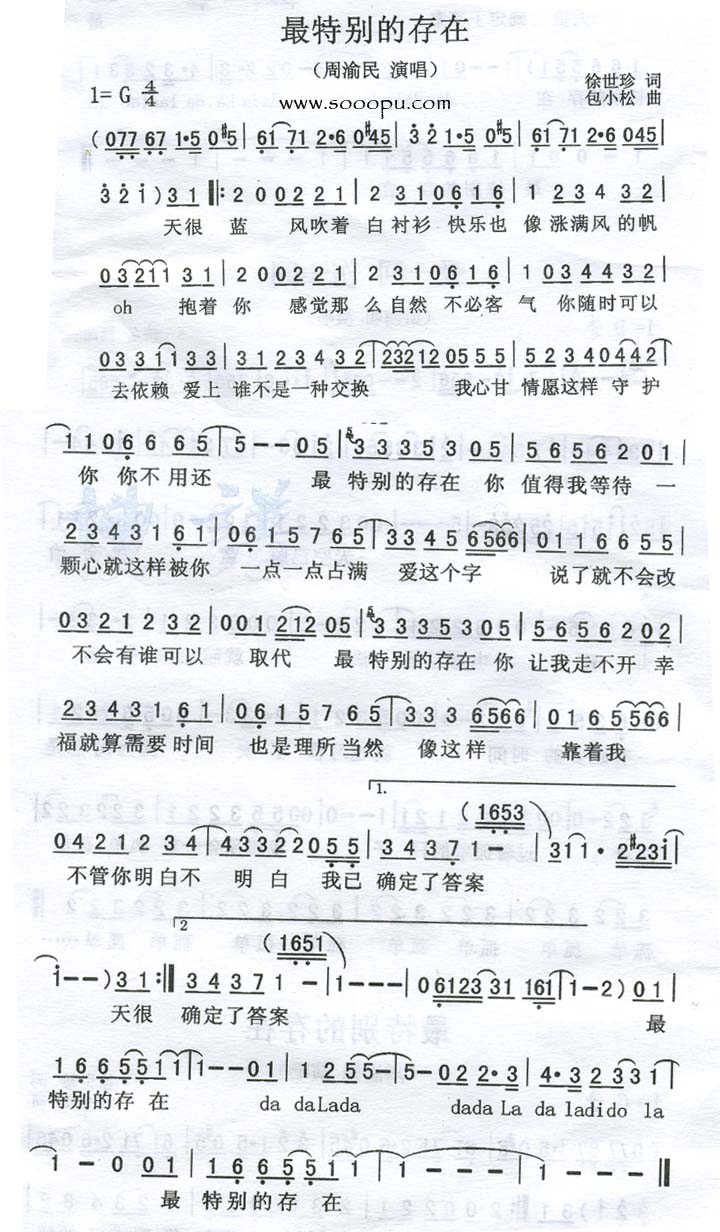 最特别的存在
（周渝民 演唱）
1=G 4/4
徐世珍 词
包小松 曲
www.sooopu.com
(077 67 1·5 0#5 | 61 71 2·6 0#45 | 3 2 1·5 0#5 | 61 71 2·6 045 |
3 2 1 ) 3 1 ‖: 2 0 0 2 2 1 | 2 3 1 0 6 1 6 | 1 2 3 4 3 2 |
天很 蓝 风吹着 白 衬衫 快乐也 像 涨满风 的帆
0 3 2 1 1 3 1 | 2 0 0 2 2 1 | 2 3 1 0 6 1 6 | 1 0 3 4 4 3 2 |
oh 抱着 你 感觉那 么自然 不必客 气 你随时可以
0 3 3 1 1 3 3 | 3 1 2 3 4 3 2 | 2 3 2 1 2 0 5 5 5 | 5 2 3 4 0 4 4 2 |
去依赖 爱上 谁不是一种交换 我心甘 情愿这样 守 护
1 1 0 6 6 6 5 | 5 - - 0 5 | 3 3 3 5 3 0 5 | 5 6 5 6 2 0 1 |
你 你不 用还 最 特别的存在 你 值得我等待 一
2 3 4 3 1 6 1 | 0 6 1 5 7 6 5 | 3 3 4 5 6 5 6 6 | 0 1 1 6 6 5 5 |
颗心就这样被你 一点一点占满 爱这个字 说了就不会改
0 3 2 2 1 2 3 2 | 0 0 1 2 1 2 0 5 | 3 3 3 5 3 0 5 | 5 6 5 6 2 0 2 |
不会有谁可以 取代 最 特别的存在 你 让我走不开 幸
2 3 4 3 1 6 1 | 0 6 1 5 7 6 5 | 3 3 3 6 5 6 6 | 0 1 6 5 5 6 6 |
福就算需要 时间 也是理所当然 像这样 靠着我
1.
(1653)
0 4 2 1 2 3 4 | 4 3 3 2 2 0 5 5 | 3 4 3 7 1 - | 3 1 1 · 2 #2 3 1 |
不管你明白不 明 白 我已 确定了答案
2
(1651)
1 - - ) 3 1 :‖ 3 4 3 7 1 - | 1 - - - | 0 6 1 2 3 3 1 1 6 1 | 1 - 2 ) 0 1 |
天很 确定了答案 最
1 6 6 5 5 1 1 | 1 - - 0 1 | 1 2 5 5 - | 5 - 0 2 2 · 3 | 4 · 3 2 3 3 1 |
特别的存 在 da daLada dada La da ladido la
1 - 0 0 1 | 1 6 6 5 5 1 1 | 1 - - - | 1 - - - ‖
最 特别的存 在